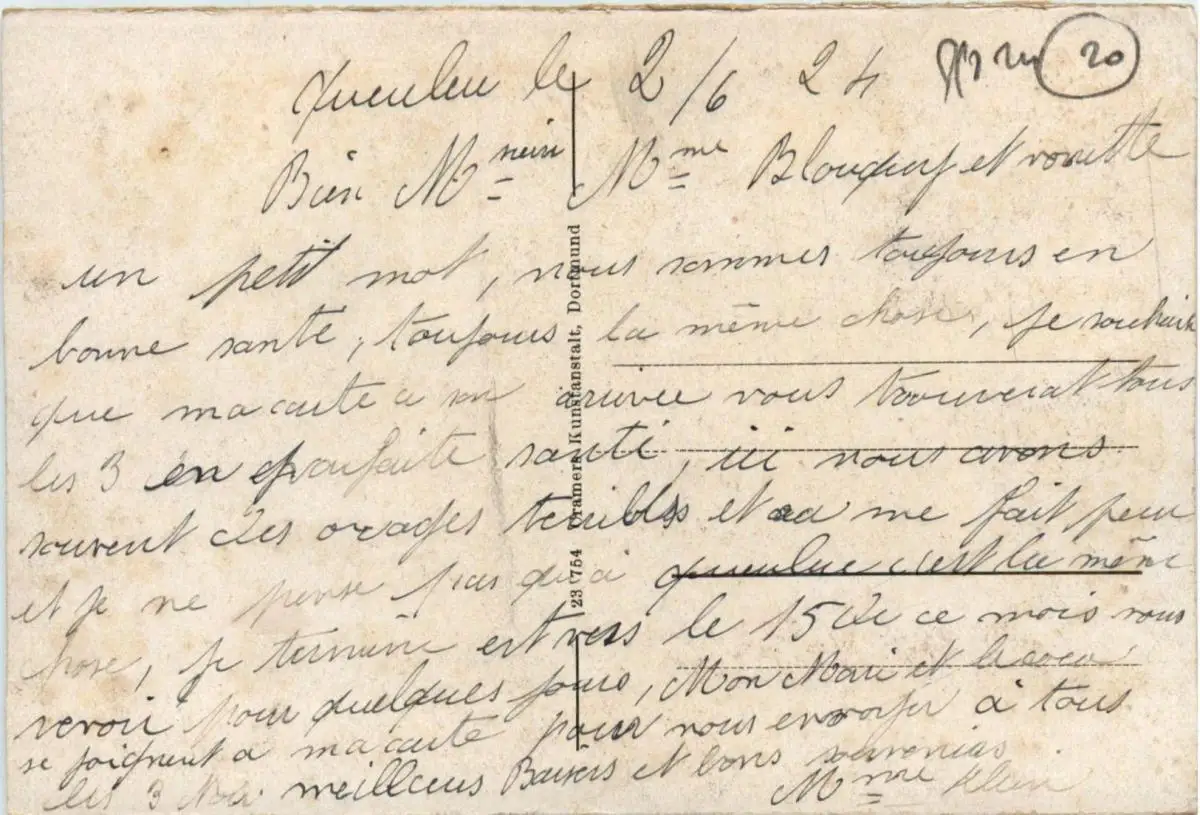 Queuleu le 2/6 24
20
Bien M M me et
un petit mot, nous sommes toujours en
bonne santé, toujours la même chose, je souhaite
que ma carte a son arivée vous trouverat tous
les 3 en parfaite santé, ici nous avons
souvent des orages terribles et sa me fait peur
et je ne pense pas qu'a Queuleu c'est la même
chose, je termine est vers le 15 de ce mois vous
revoir pour quelques jours, Mon Mari et
se joignent a ma carte pour vous envoyer à tous
les 3 meilleurs Baisers et bons souvenirs
M me Klein
23 754 Cramers Kunstanstalt, Dortmund